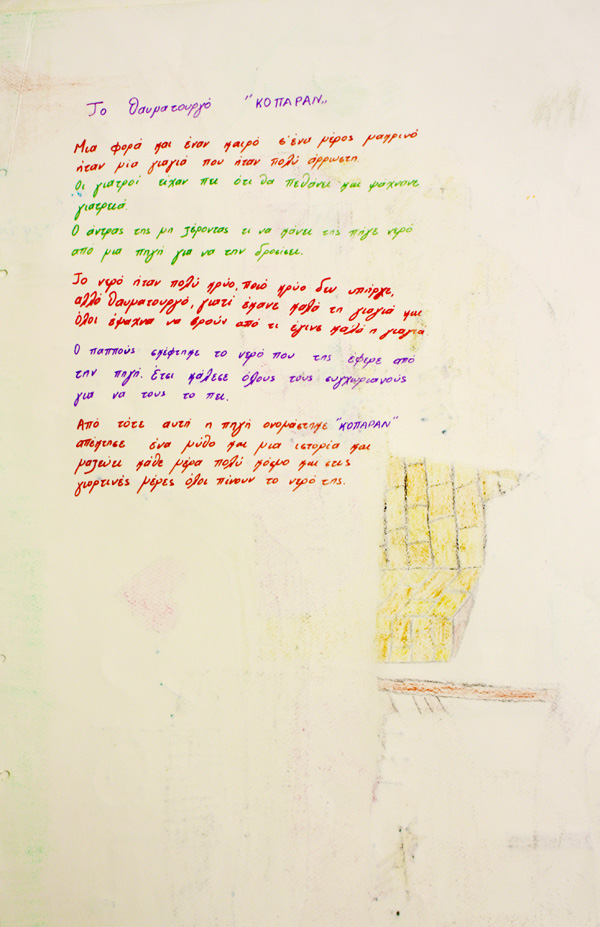 Το θαυματουργό "ΚΟΠΑΡΑΝ"
Μια φορά και έναν καιρό σ'ένα μέρος μακρινό
ήταν μία γιαγιά που ήταν πολύ άρρωστη.
Οι γιατροί είχαν πει ότι θα πεθάνει και ψάχνανε
γιατρειά.
Ο άντρας της μη ξέροντας τι να κάνει της πήγε νερό
από μια πηγή για να την δροσίσει.
Το νερό ήταν πολύ κρύο, ποιό κρύο δεν υπήρχε,
αλλά θαυματουργό, γιατί έκανε καλά τη γιαγιά και
όλοι έψαχνα να βρούν από τι έγινε καλά η γιαγιά.
Ο παππούς σκέφτηκε το νερό που της έφερε από
την πηγή. Έτσι κάλεσε όλους τους συγχωριανούς
για να τους το πει.
Από τότε αυτή η πηγή ονομάστηκε "ΚΟΠΑΡΑΝ"
απέκτησε ένα μύθο και μια ιστορία και
μαζεύει κάθε μέρα πολύ κόσμο και στις
γιορτινές μέρες όλοι πίνουν το νερό της.